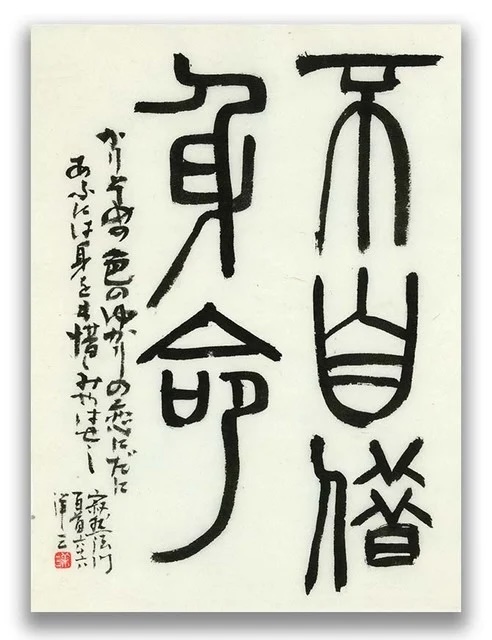 不自惜
身命
かりそめの色のゆかりの恋にだに
あふには身をも惜しみやはせし
寂然法門
百首六十六